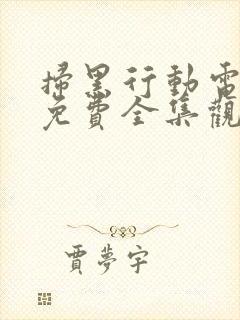 掃黑行動電
免費全集觀
賈夢宇